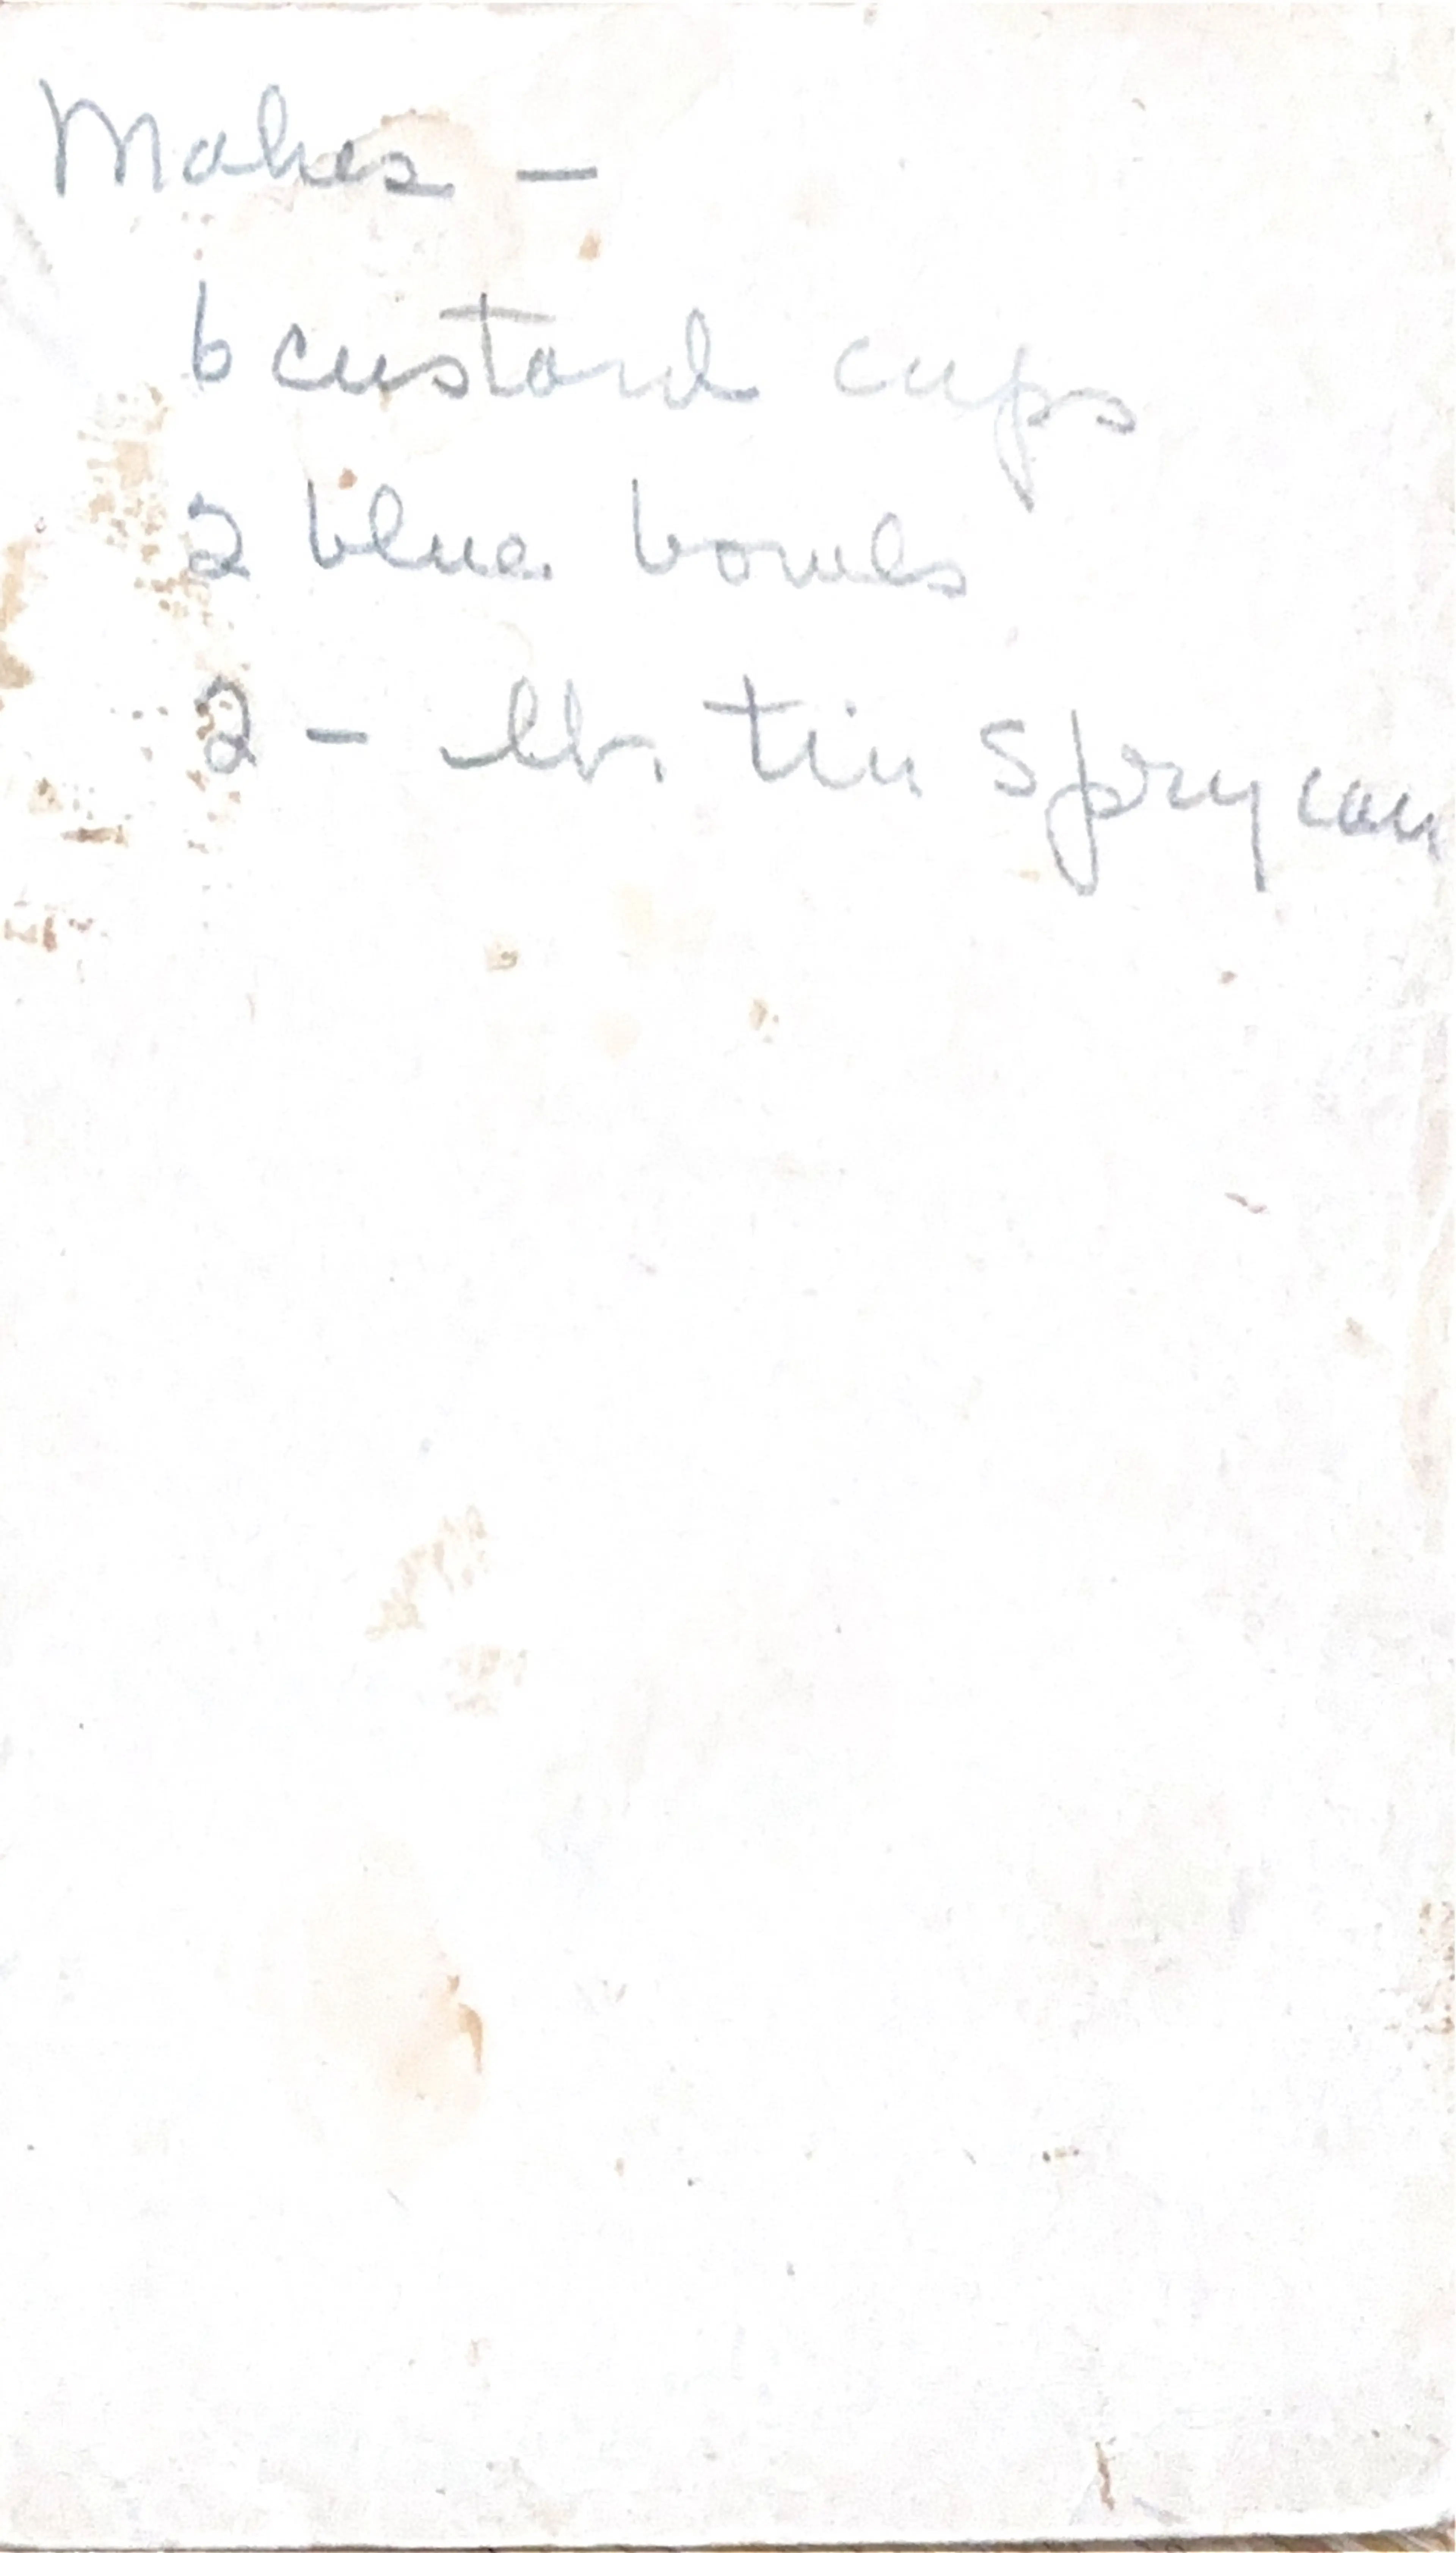 Makes -
6 custard cups
2 blue bowls
2 - lb. tin Spry can